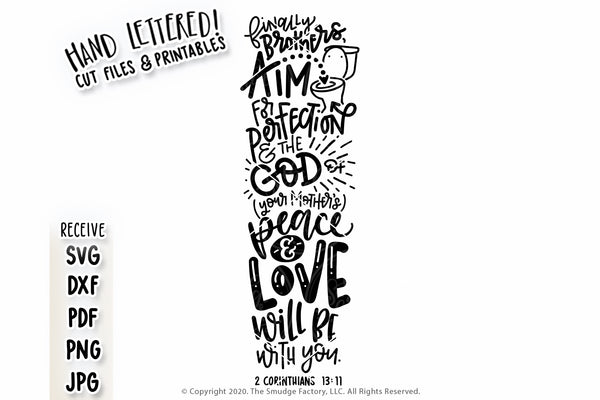 HAND LETTERED!
CUT FILES & PRINTABLES
finally
BROTHERS,
AIM
FOR
PERFECTION
& THE
GOD OF
(YOUR MOTHER'S)
peace
&
LOVE
will BE
with you.
2 CORINTHIANS 13:11
RECEIVE
SVG
DXF
PDF
PNG
JPG
© Copyright 2020. The Smudge Factory, LLC. All Rights Reserved.